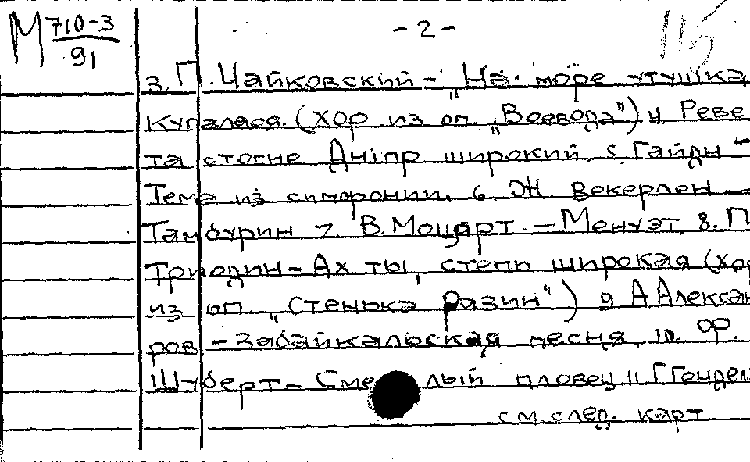 М 710-3
91
- 2 -
115
3. П. Чайковский - "На море утушка
купалася. (хор из оп "Воевода") 4 Реве
та стогне Дніпр широкий. 5. Гайдн -
Тема из симфонии. 6. Ж Векерлен -
Тамбурин 7. В. Моцарт. - Менуэт. 8. П
Триодин - Ах ты, степь широкая (хор
из оп "Стенька Разин") 9 А Алексан
ров - Забайкальская песня. 10. Фр.
Шуберт - Смелый пловец 11 Г Гендель
см. след. карт